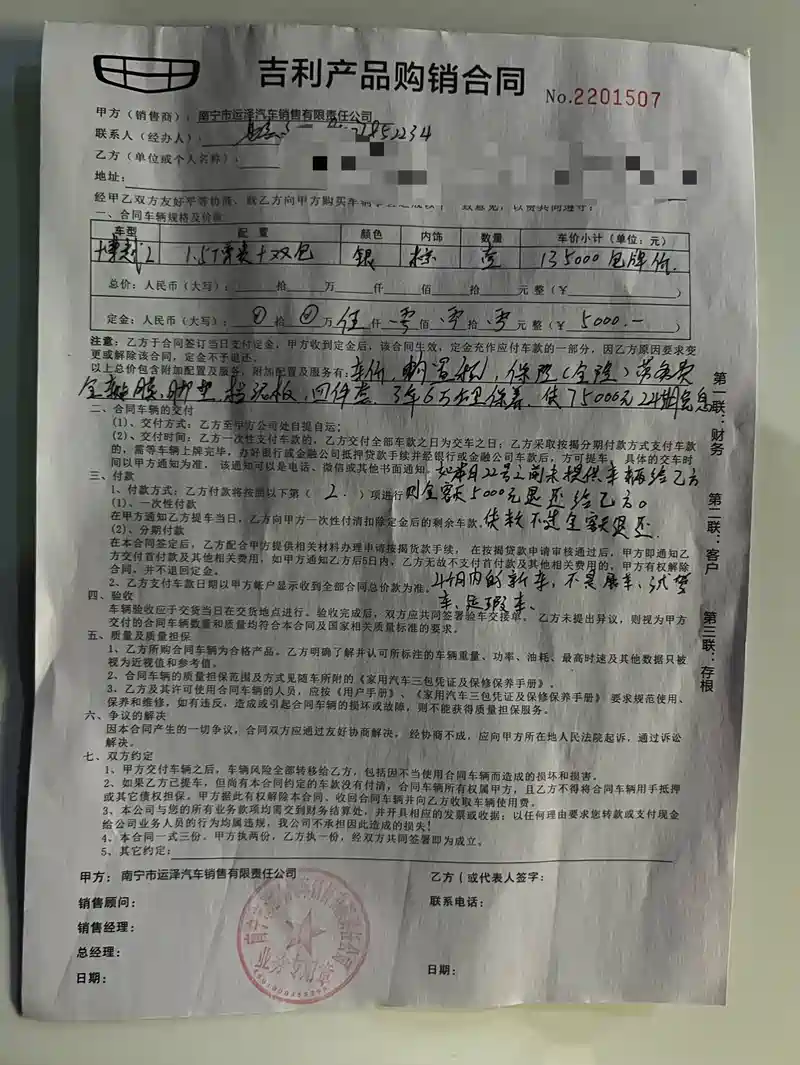 吉利产品购销合同
No.2201507
甲方（销售商）：南宁市运泽汽车销售有限责任公司
联系人（经办人）：
乙方（单位或个人名称）：
地址：
经甲乙双方友好平等协商，就乙方向甲方购买车辆
一、合同车辆规格及价款
车型 配置 颜色 内饰 数量 车价小计（单位：元）
博越L 1.5T 十双包 银 棕 壹 135000包牌价.
总价：人民币（大写）： 拾 万 仟 佰 拾 元整（￥ ）
定金：人民币（大写）： 拾 万 伍 仟 零 佰 零 拾 零 元整（￥ 5000.— ）
注意：乙方于合同签订当日支付定金，甲方收到定金后，该合同生效，定金充作应付车款的一部分，因乙方原因要求变
更或解除该合同，定金不予退还。
以上总价包含附加配置及服务，附加配置及服务有：车价，购置税，保险（全险）劳务费
全车膜，脚垫，挡泥板，四件套，3年6万公里保养，贷75000元24期免息
二、合同车辆的交付
（1）、交付方式：乙方至甲方公司处自提自运；
（2）、交付时间：乙方一次性支付车款的，乙方交付全部车款之日为交车之日；乙方采取按揭分期付款方式支付车款
的，需等车辆上牌完毕，办好银行或金融公司抵押贷款手续并经银行或金融公司车款后，方可提车，具体的交车时
间以甲方通知为准，该通知可以是电话、微信或其他书面通知。如本月22号之前未提供车辆给乙方
三、付款
1、付款方式：乙方付款将按照以下第（ 2. ）项进行 则全额5000元退还给乙方。
（1）、一次性付款
在甲方通知乙方提车当日，乙方向甲方一次性付清扣除定金后的剩余车款。贷款不过全额退还.
（2）、分期付款
在本合同签定后，乙方配合甲方提供相关材料办理申请按揭货款手续，在按揭贷款申请审核通过后，甲方即通知乙
方交付首付款及其他相关费用，如甲方通知乙方后5日内，乙方无故不支付首付款及其他相关费用的，甲方有权解除
合同，并不退回定金。
2、乙方支付车款日期以甲方帐户显示收到全部合同总价款为准。4个月内的新车，不是展车、试驾
四、验收 车、退瑕车、
车辆验收应于交货当日在交货地点进行。验收完成后，双方应共同签署验车交接单，乙方未提出异议，则视为甲方
交付的合同车辆数量和质量均符合本合同及国家相关质量标准的要求。
五、质量及质量担保
1、乙方所购合同车辆为合格产品。乙方明确了解并认可所标注的车辆重量、功率、油耗、最高时速及其他数据只被
视为近视值和参考值。
2、合同车辆的质量担保范围及方式见随车所附的《家用汽车三包凭证及保修保养手册》。
3、乙方及其许可使用合同车辆的人员，应按《用户手册》、《家用汽车三包凭证及保修保养手册》要求规范使用、
保养和维修，如有违反，造成或引起合同车辆的损坏或故障，则不能获得质量担保服务。
六、争议的解决
因本合同产生的一切争议，合同双方应通过友好协商解决，经协商不成，应向甲方所在地人民法院起诉，通过诉讼
解决。
七、双方约定
1、甲方交付车辆之后，车辆风险全部转移给乙方，包括因不当使用合同车辆而造成的损坏和损害。
2、如果乙方已提车，但尚有本合同约定的车款没有付清，合同车辆所有权属甲方，且乙方不得将合同车辆用手抵押
或其它债权担保。甲方据此有权解除本合同、收回合同车辆并向乙方收取车辆使用费。
3、本公司与您的所有业务款项均需交到财务结算处，并开具相应的发票或收据；以任何理由要求您转款或支付现金
给公司业务人员的行为均属违规，我公司不承担因此造成的损失！
4、本合同一式三份。甲方执两份，乙方执一份，经双方共同签署即为成立。
5、其它约定：
甲方：南宁市运泽汽车销售有限责任公司
乙方（或代表人签字：
销售顾问：
联系电话：
销售经理：
总经理：
日期：
日期：
业务专用章
第一联：财务
第二联：客户
第三联：存根